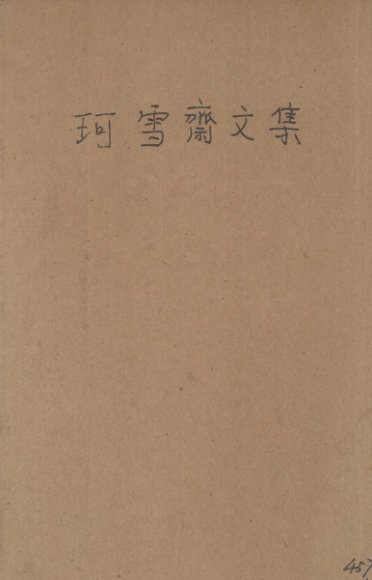 珂雪齋文集
457